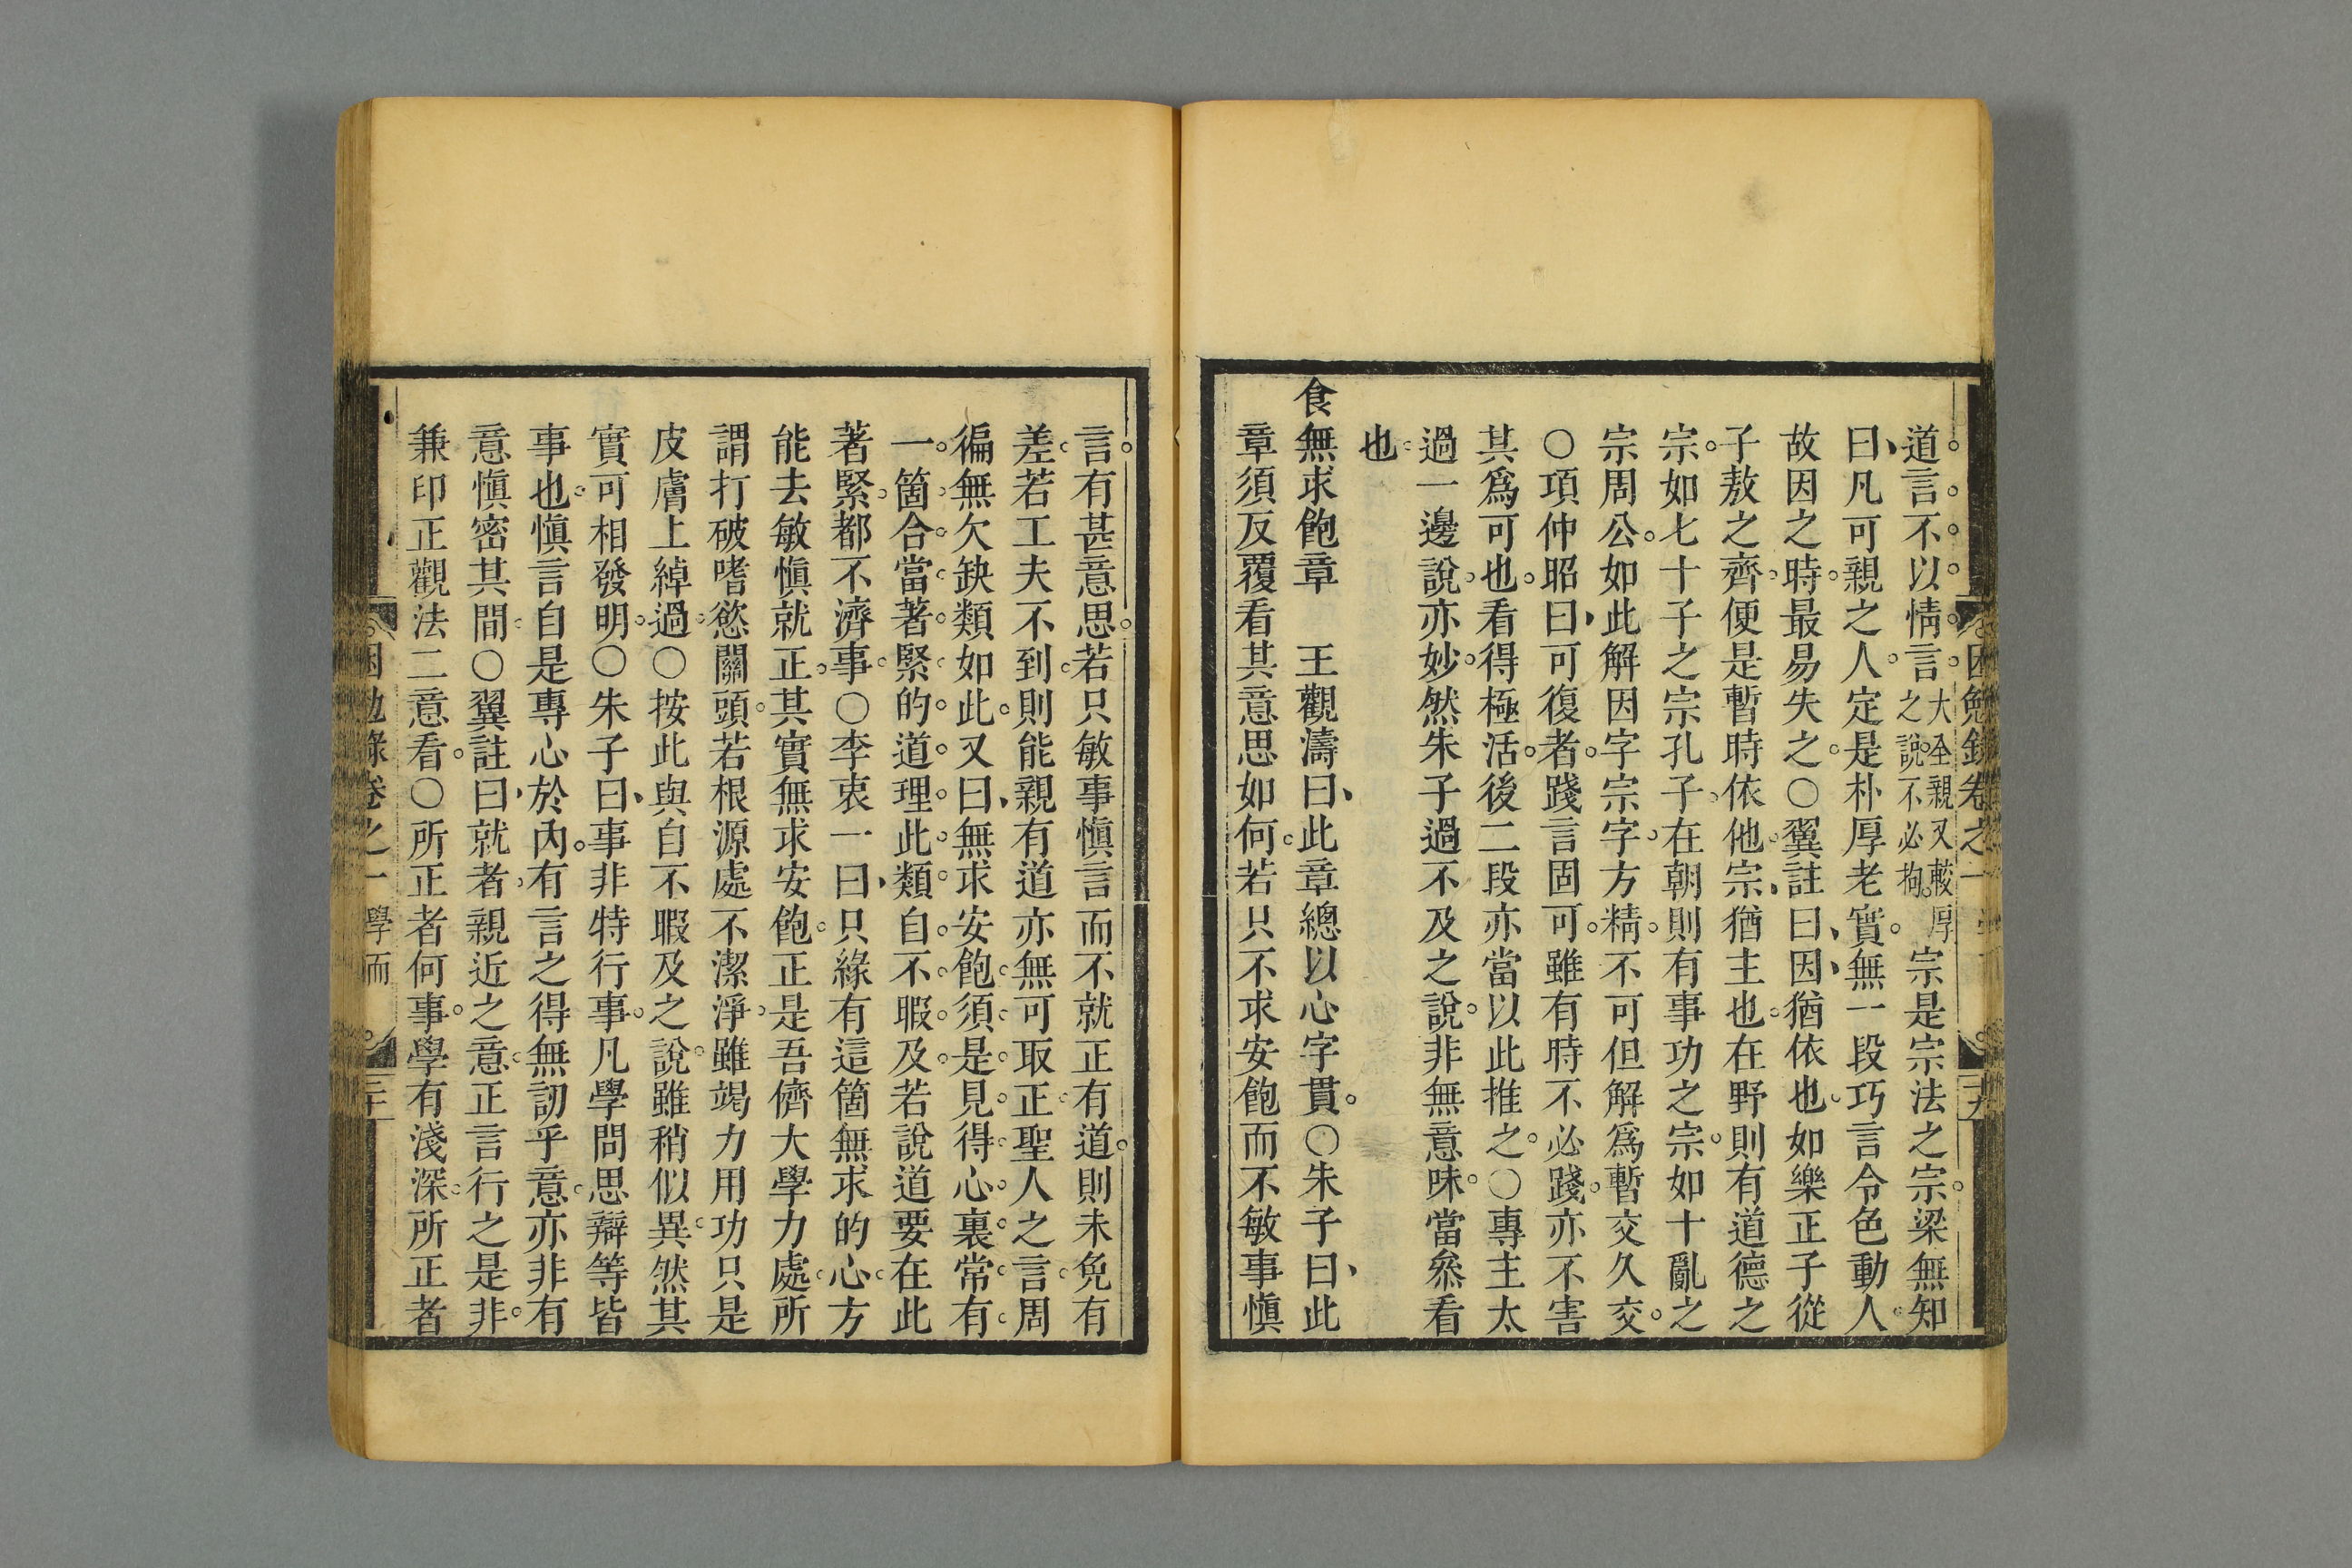 道言不以情言大全親又較厚之說不必拘宗是宗法之宗梁無知
曰凡可親之人定是朴厚老實無一段巧言令色動人
故因之時最易失之○翼註曰因猶依也如樂正子從
子敖之齊便是暫時依他宗猶主也在野則有道德之
宗如七十子之宗孔子在朝則有事功之宗如十亂之
宗周公如此解因字宗字方精不可但解爲暫交久交
○項仲昭曰可復者踐言固可雖有時不必踐亦不害
其爲可也看得極活後二段亦當以此推之○專主太
過一邊說亦妙然朱子過不及之說非無意味當叅看
也
食無求飽章　王觀濤曰此章總以心字貫○朱子曰此
章須反覆看其意思如何若只不求安飽而不敏事慎
言有甚意思若只敏事慎言而不就正有道則未免有
差若工夫不到則能親有道亦無可取正聖人之言周
徧無欠缺類如此又曰無求安飽須是見得心裏常有
一箇合當著緊的道理此類自不暇及若說道要在此
著緊都不濟事○李衷一曰只緣有這箇無求的心方
能去敏慎就正其實無求安飽正是吾儕大學力處所
謂打破嗜慾關頭若根源處不潔淨雖竭力用功只是
皮膚上綽過○按此與自不暇及之說雖稍似異然其
實可相發明○朱子曰事非特行事凡學問思辯等皆
事也慎言自是專心於內有言之得無訒乎意亦非有
意慎密其間○翼註曰就者親近之意正言行之是非
兼印正觀法二意看○所正者何事學有淺深所正者
困勉錄卷之一 學而 二十